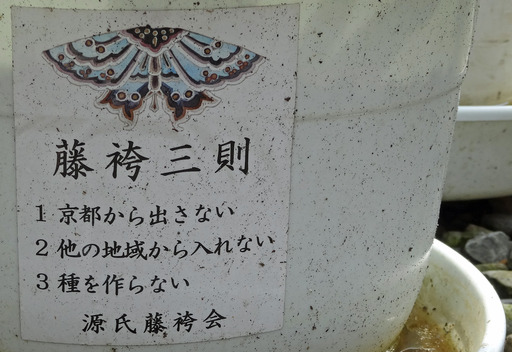 藤袴三則
1 京都から出さない
2 他の地域から入れない
3 種を作らない
源氏藤袴会